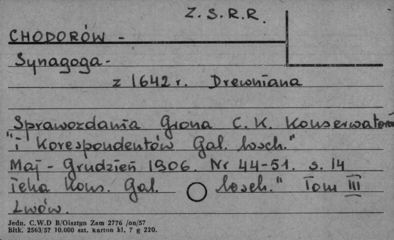 Z.S.R.R.
CHODORÓW -
Synagoga -
z 1642 r. Drewniana
Sprawozdania Grona C.K. Konserwatorów
"i Korespondentów Gal. wsch."
Maj - Grudzień 1906. Nr 44-51. s. 14
Teka Kons. Gal. wsch." Tom III
Lwów.
Jedn. C.W.D B/Olsztyn Zam 2776 /on/57
Blbk. 2563/57 10.000 szt. karton kl. 7 g 220.